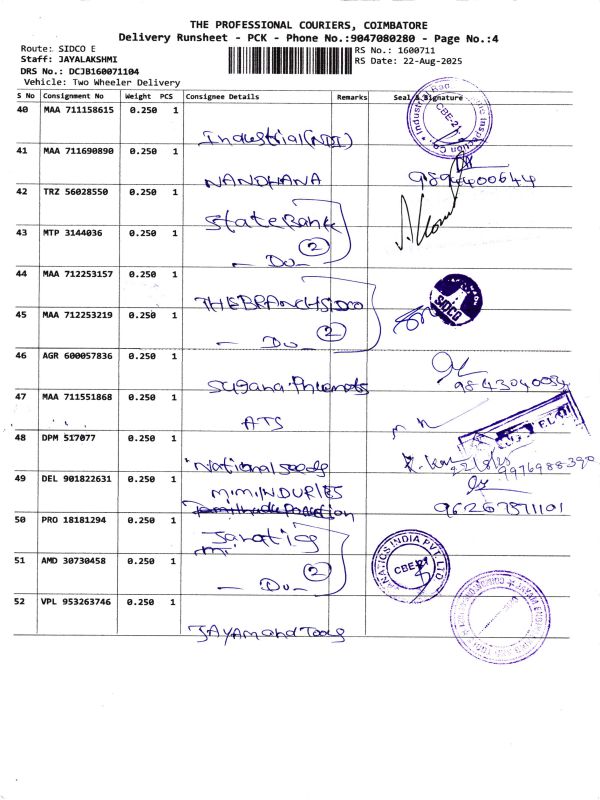 THE PROFESSIONAL COURIERS, COIMBATORE
Delivery Runsheet - PCK - Phone No.:9047080280 - Page No.:4
Route: SIDCO E
RS No.: 1600711
Staff: JAYALAKSHMI
RS Date: 22-Aug-2025
DRS No.: DCJB160071104
Vehicle: Two Wheeler Delivery
S No Consignment No Weight PCS Consignee Details Remarks Seal & Signature
40 MAA 711158615 0.250 1
Industrial (NDI)
CBE-21
41 MAA 711690890 0.250 1
NANDHANA 9894400644
42 TRZ 56028550 0.250 1
State Bank
43 MTP 3144036 0.250 1
2
- Do -
44 MAA 712253157 0.250 1
THE BRANCH SIDCO
SIDCO
45 MAA 712253219 0.250 1
2
- Do -
46 AGR 600057836 0.250 1
47 MAA 711551868 0.250 1
ATS
48 DPM 517077 0.250 1
National Seeds
22/8/25
9976988390
49 DEL 901822631 0.250 1
M.M.INDURIES
50 PRO 18181294 0.250 1
51 AMD 30730458 0.250 1
2
- Do -
CBE-21
52 VPL 953263746 0.250 1
JAYAM and Tools